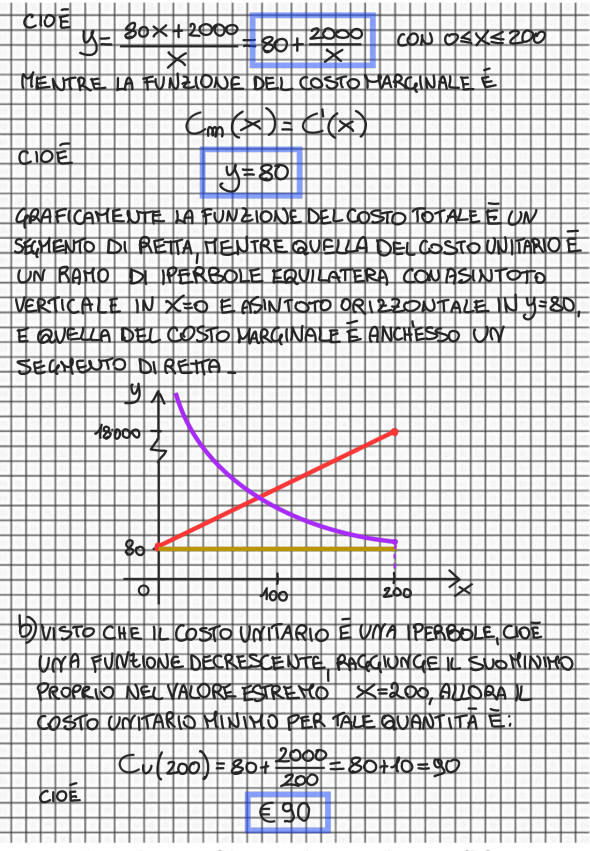 CIOÈ y = (80x+2000)/x = 80 + 2000/x CON 0≤x≤200
MENTRE LA FUNZIONE DEL COSTO MARGINALE È
Cm(x) = C'(x)
CIOÈ
y=80
GRAFICAMENTE LA FUNZIONE DEL COSTO TOTALE È UN
SEGMENTO DI RETTA, MENTRE QUELLA DEL COSTO UNITARIO È
UN RAMO DI IPERBOLE EQUILATERA CON ASINTOTO
VERTICALE IN X=0 E ASINTOTO ORIZZONTALE IN y=80,
E QUELLA DEL COSTO MARGINALE È ANCH'ESSO UN
SEGMENTO DI RETTA.
y
18000
80
0 100 200 x
b) VISTO CHE IL COSTO UNITARIO È UNA IPERBOLE, CIOÈ
UNA FUNZIONE DECRESCENTE, RAGGIUNGE IL SUO MINIMO
PROPRIO NEL VALORE ESTREMO X=200, ALLORA IL
COSTO UNITARIO MINIMO PER TALE QUANTITÀ È:
Cu(200) = 80 + 2000/200 = 80+10 = 90
CIOÈ
€ 90